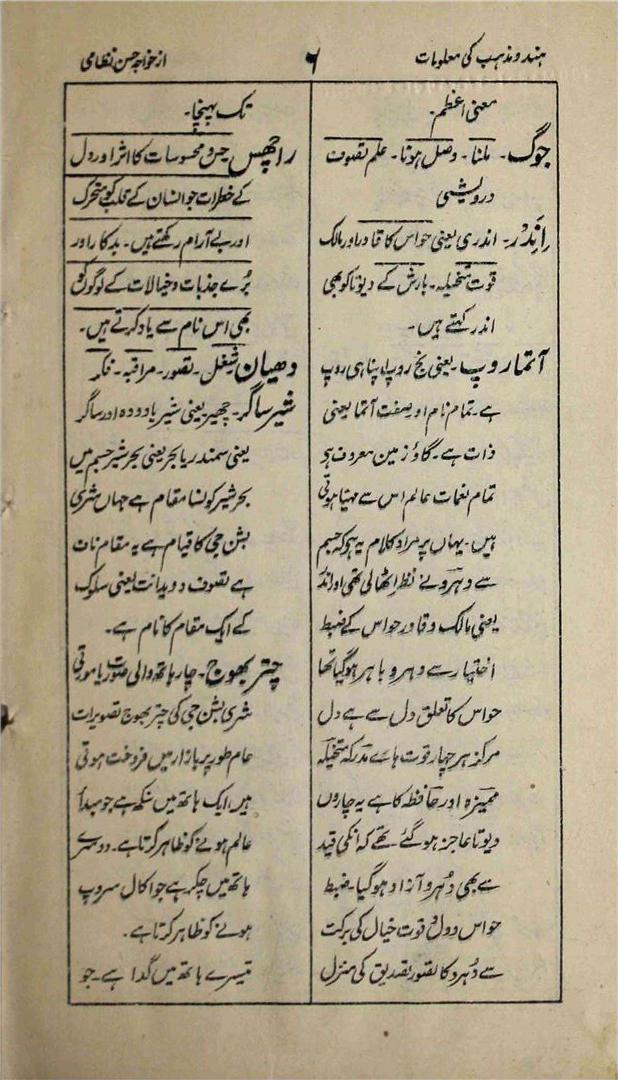 ہندو مذہب کی معلومات
۶
از خواجہ حسن نظامی
معنی اعظم۔
جوگ۔ ملنا۔ وصل ہونا۔ علم تصوف
درویشی
راِنْدر۔ اندری یعنی حواس کا قادر اور مالک
قوت متخیلہ۔ بارش کے دیوتا کو بھی
اندر کہتے ہیں۔
آتما روپ۔ یعنی نج روپ اپنا ہی روپ
ہے۔ تمام نام اوصفت آتما یعنی
ذات ہے۔ گاؤ زمین معروف ہے
تمام نعمات عالم اس سے مہیا ہوتی
ہیں۔ یہاں پر مراد کلام یہ ہے کہ جسم
سے دہرو نے نظر اٹھالی تھی اور اندر
یعنی مالک و قادر حواس کے ضبط
اختیار سے دہرو باہر ہوگیا تھا
حواس کا تعلق دل سے ہے دل
مرکز ہر چہار قوت ہائے مدرکہ متخیلہ
ممیزہ اور حافظہ کا ہے یہ چاروں
دیوتا عاجز ہوگئے تھے کہ انکی قید
سے بھی دُہرو آزاد ہوگیا۔ ضبط
حواس و دل و قوت خیال کی برکت
سے دُہرو کا تصور تصدیق کی منزل
تک پہنچا۔
راچھس۔ حس و محسوسات کا اثر اور دل
کے خطرات جو انسان کے قلب کو متحرک
اور بے آرام رکھتے ہیں۔ بدکار اور
بُرے جذبات و خیالات کے لوگوں کو
بھی اس نام سے یاد کرتے ہیں۔
دھیان شغل۔ تصور۔ مراقبہ۔ فکر
شیر ساگر۔ چھیر یعنی شیر یا دودہ اور ساگر
یعنی سمندر یا بحر یعنی بحر شیر جسم میں
بحر شیر کونسا مقام ہے جہاں شری
بشن جی کا قیام ہے یہ مقام ناف
ہے تصوف و ویدانت یعنی سلوک
کے ایک مقام کا نام ہے۔
چتر بھوج۔ چار ہاتھ والی صورت یا مورتی
شری بشن جی کی چتر بھوج تصویرات
عام طور پر بازار میں فروخت ہوتی
ہیں ایک ہاتھ میں سنکھ ہے جو مبداُ
عالم ہونے کو ظاہر کرتا ہے۔ دوسرے
ہاتھ میں چکر ہے جو اکال سروپ
ہونے کو ظاہر کرتا ہے۔
تیسرے ہاتھ میں گدا ہے۔ جو